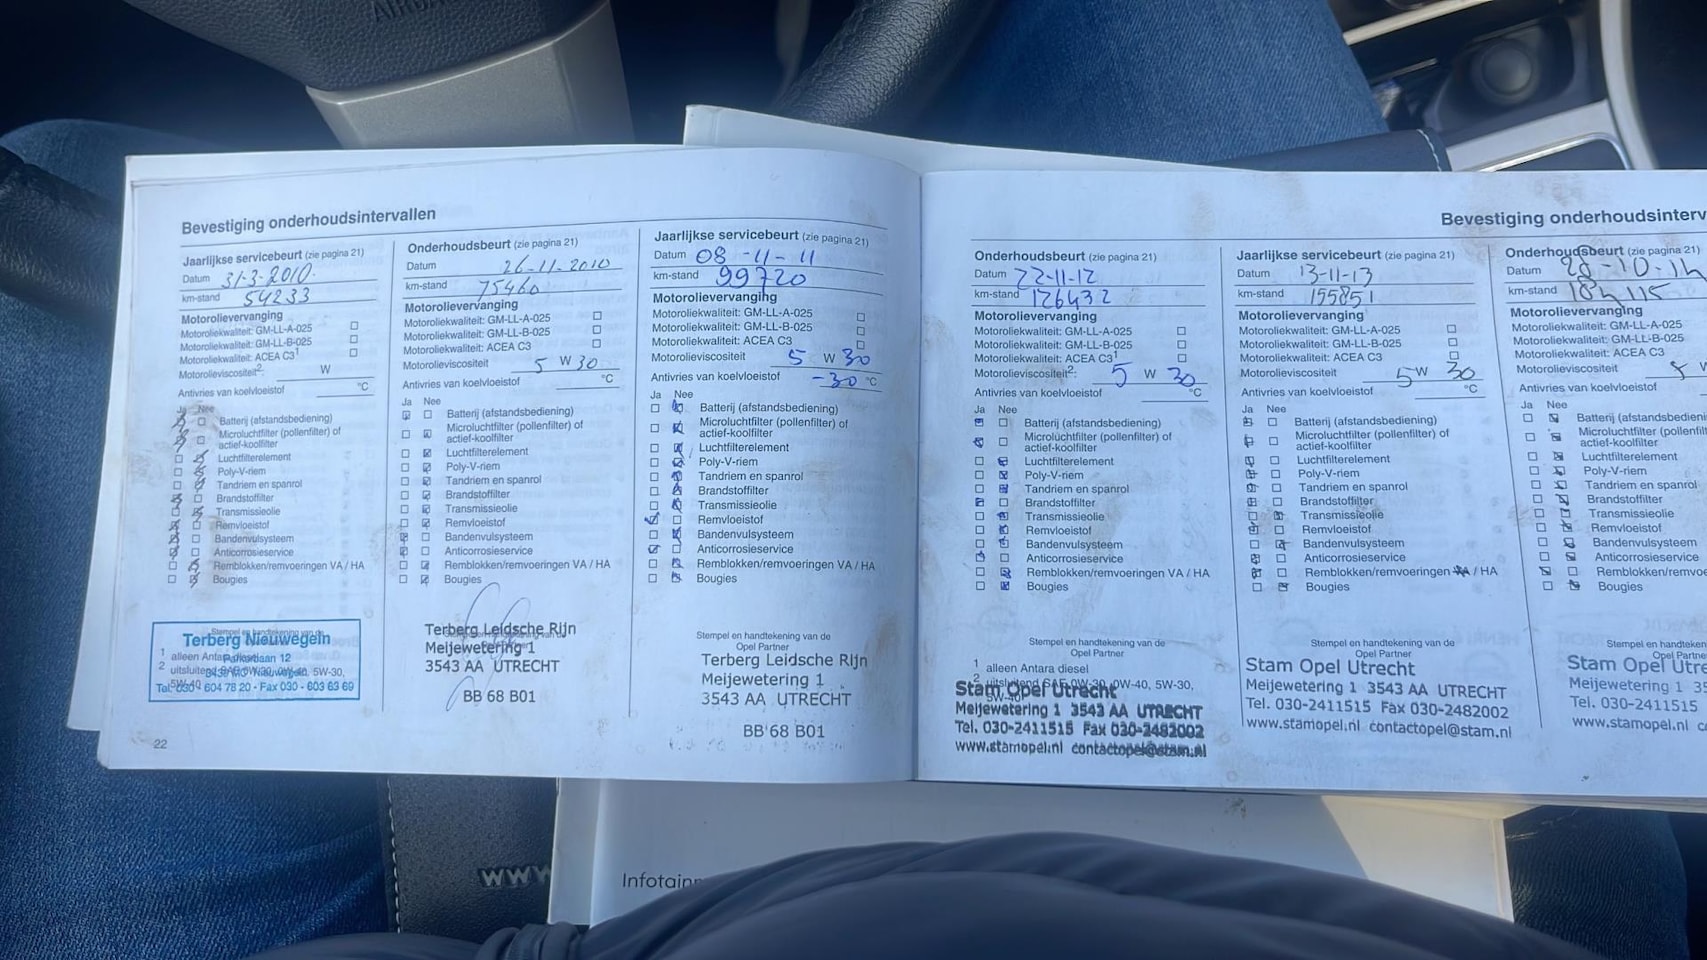 AIRBAG
Bevestiging onderhoudsintervallen
Jaarlijkse servicebeurt (zie pagina 21)
Datum 31-3-2010
km-stand 54233
Motorolievervanging
Motoroliekwaliteit: GM-LL-A-025
Motoroliekwaliteit: GM-LL-B-025
Motoroliekwaliteit: ACEA C3¹
Motorolieviscositeit²: W
Antivries van koelvloeistof °C
Ja Nee
Batterij (afstandsbediening)
Microluchtfilter (pollenfilter) of
actief-koolfilter
Luchtfilterelement
Poly-V-riem
Tandriem en spanrol
Brandstoffilter
Transmissieolie
Remvloeistof
Bandenvulsysteem
Anticorrosieservice
Remblokken/remvoeringen VA / HA
Bougies
Stempel en handtekening van de
Terberg Nieuwegein
1 alleen Antara diesel
Parkerbaan 12
2 uitsluitend SAE 0W-30, 0W-40, 5W-30,
5W-40
3439 MC Nieuwegein
Tel. 030 - 604 78 20 - Fax 030 - 603 63 69
22
Onderhoudsbeurt (zie pagina 21)
Datum 26-11-2010
km-stand 75460
Motorolievervanging
Motoroliekwaliteit: GM-LL-A-025
Motoroliekwaliteit: GM-LL-B-025
Motoroliekwaliteit: ACEA C3
Motorolieviscositeit 5 W 30
Antivries van koelvloeistof °C
Ja Nee
Batterij (afstandsbediening)
Microluchtfilter (pollenfilter) of
actief-koolfilter
Luchtfilterelement
Poly-V-riem
Tandriem en spanrol
Brandstoffilter
Transmissieolie
Remvloeistof
Bandenvulsysteem
Anticorrosieservice
Remblokken/remvoeringen VA / HA
Bougies
Terberg Leidsche Rijn
Meijewetering 1
3543 AA UTRECHT
BB 68 B01
Jaarlijkse servicebeurt (zie pagina 21)
Datum 08-11-11
km-stand 99720
Motorolievervanging
Motoroliekwaliteit: GM-LL-A-025
Motoroliekwaliteit: GM-LL-B-025
Motoroliekwaliteit: ACEA C3
Motorolieviscositeit 5 W 30
Antivries van koelvloeistof -30 °C
Ja Nee
Batterij (afstandsbediening)
Microluchtfilter (pollenfilter) of
actief-koolfilter
Luchtfilterelement
Poly-V-riem
Tandriem en spanrol
Brandstoffilter
Transmissieolie
Remvloeistof
Bandenvulsysteem
Anticorrosieservice
Remblokken/remvoeringen VA / HA
Bougies
Stempel en handtekening van de
Opel Partner
Terberg Leidsche Rijn
Meijewetering 1
3543 AA UTRECHT
BB 68 B01
Bevestiging onderhoudsinterv
Onderhoudsbeurt (zie pagina 21)
Datum 22-11-12
km-stand 126432
Motorolievervanging
Motoroliekwaliteit: GM-LL-A-025
Motoroliekwaliteit: GM-LL-B-025
Motoroliekwaliteit: ACEA C3¹
Motorolieviscositeit²: 5 W 30
Antivries van koelvloeistof °C
Ja Nee
Batterij (afstandsbediening)
Microluchtfilter (pollenfilter) of
actief-koolfilter
Luchtfilterelement
Poly-V-riem
Tandriem en spanrol
Brandstoffilter
Transmissieolie
Remvloeistof
Bandenvulsysteem
Anticorrosieservice
Remblokken/remvoeringen VA / HA
Bougies
Stempel en handtekening van de
Opel Partner
1 alleen Antara diesel
2 uitsluitend SAE 0W-30, 0W-40, 5W-30,
5W-40
Stam Opel Utrecht
Meijewetering 1 3543 AA UTRECHT
Tel. 030-2411515 Fax 030-2482002
www.stamopel.nl contactopel@stam.nl
Jaarlijkse servicebeurt (zie pagina 21)
Datum 13-11-13
km-stand 155851
Motorolievervanging
Motoroliekwaliteit: GM-LL-A-025
Motoroliekwaliteit: GM-LL-B-025
Motoroliekwaliteit: ACEA C3
Motorolieviscositeit 5 W 30
Antivries van koelvloeistof °C
Ja Nee
Batterij (afstandsbediening)
Microluchtfilter (pollenfilter) of
actief-koolfilter
Luchtfilterelement
Poly-V-riem
Tandriem en spanrol
Brandstoffilter
Transmissieolie
Remvloeistof
Bandenvulsysteem
Anticorrosieservice
Remblokken/remvoeringen VA / HA
Bougies
Stempel en handtekening van de
Opel Partner
Stam Opel Utrecht
Meijewetering 1 3543 AA UTRECHT
Tel. 030-2411515 Fax 030-2482002
www.stamopel.nl contactopel@stam.nl
Onderhoudsbeurt (zie pagina 21)
Datum 28-10-14
km-stand 184115
Motorolievervanging
Motoroliekwaliteit: GM-LL-A-025
Motoroliekwaliteit: GM-LL-B-025
Motoroliekwaliteit: ACEA C3
Motorolieviscositeit 5 W
Antivries van koelvloeistof
Ja Nee
Batterij (afstandsbedieni
Microluchtfilter (pollenfilt
actief-koolfilter
Luchtfilterelement
Poly-V-riem
Tandriem en spanrol
Brandstoffilter
Transmissieolie
Remvloeistof
Bandenvulsysteem
Anticorrosieservice
Remblokken/remvoe
Bougies
Stempel en handteken
Opel Partner
Stam Opel Utre
Meijewetering 1 35
Tel. 030-2411515
www.stamopel.nl co
www
Infotain